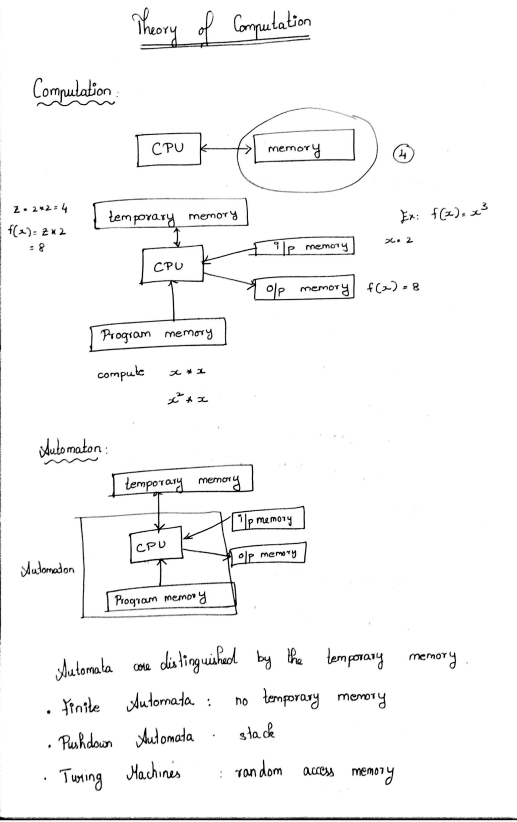 Theory of Computation
Computation:
CPU
memory
4
z = 2*2 = 4
temporary memory
Ex: f(x) = x³
f(x) = z*2
= 8
i/p memory
x = 2
CPU
o/p memory
f(x) = 8
Program memory
compute x * x
x² * x
Automaton:
temporary memory
i/p memory
CPU
o/p memory
Automaton
Program memory
Automata are distinguished by the temporary memory.
• Finite Automata : no temporary memory
• Pushdown Automata . stack
• Turing Machines : random access memory